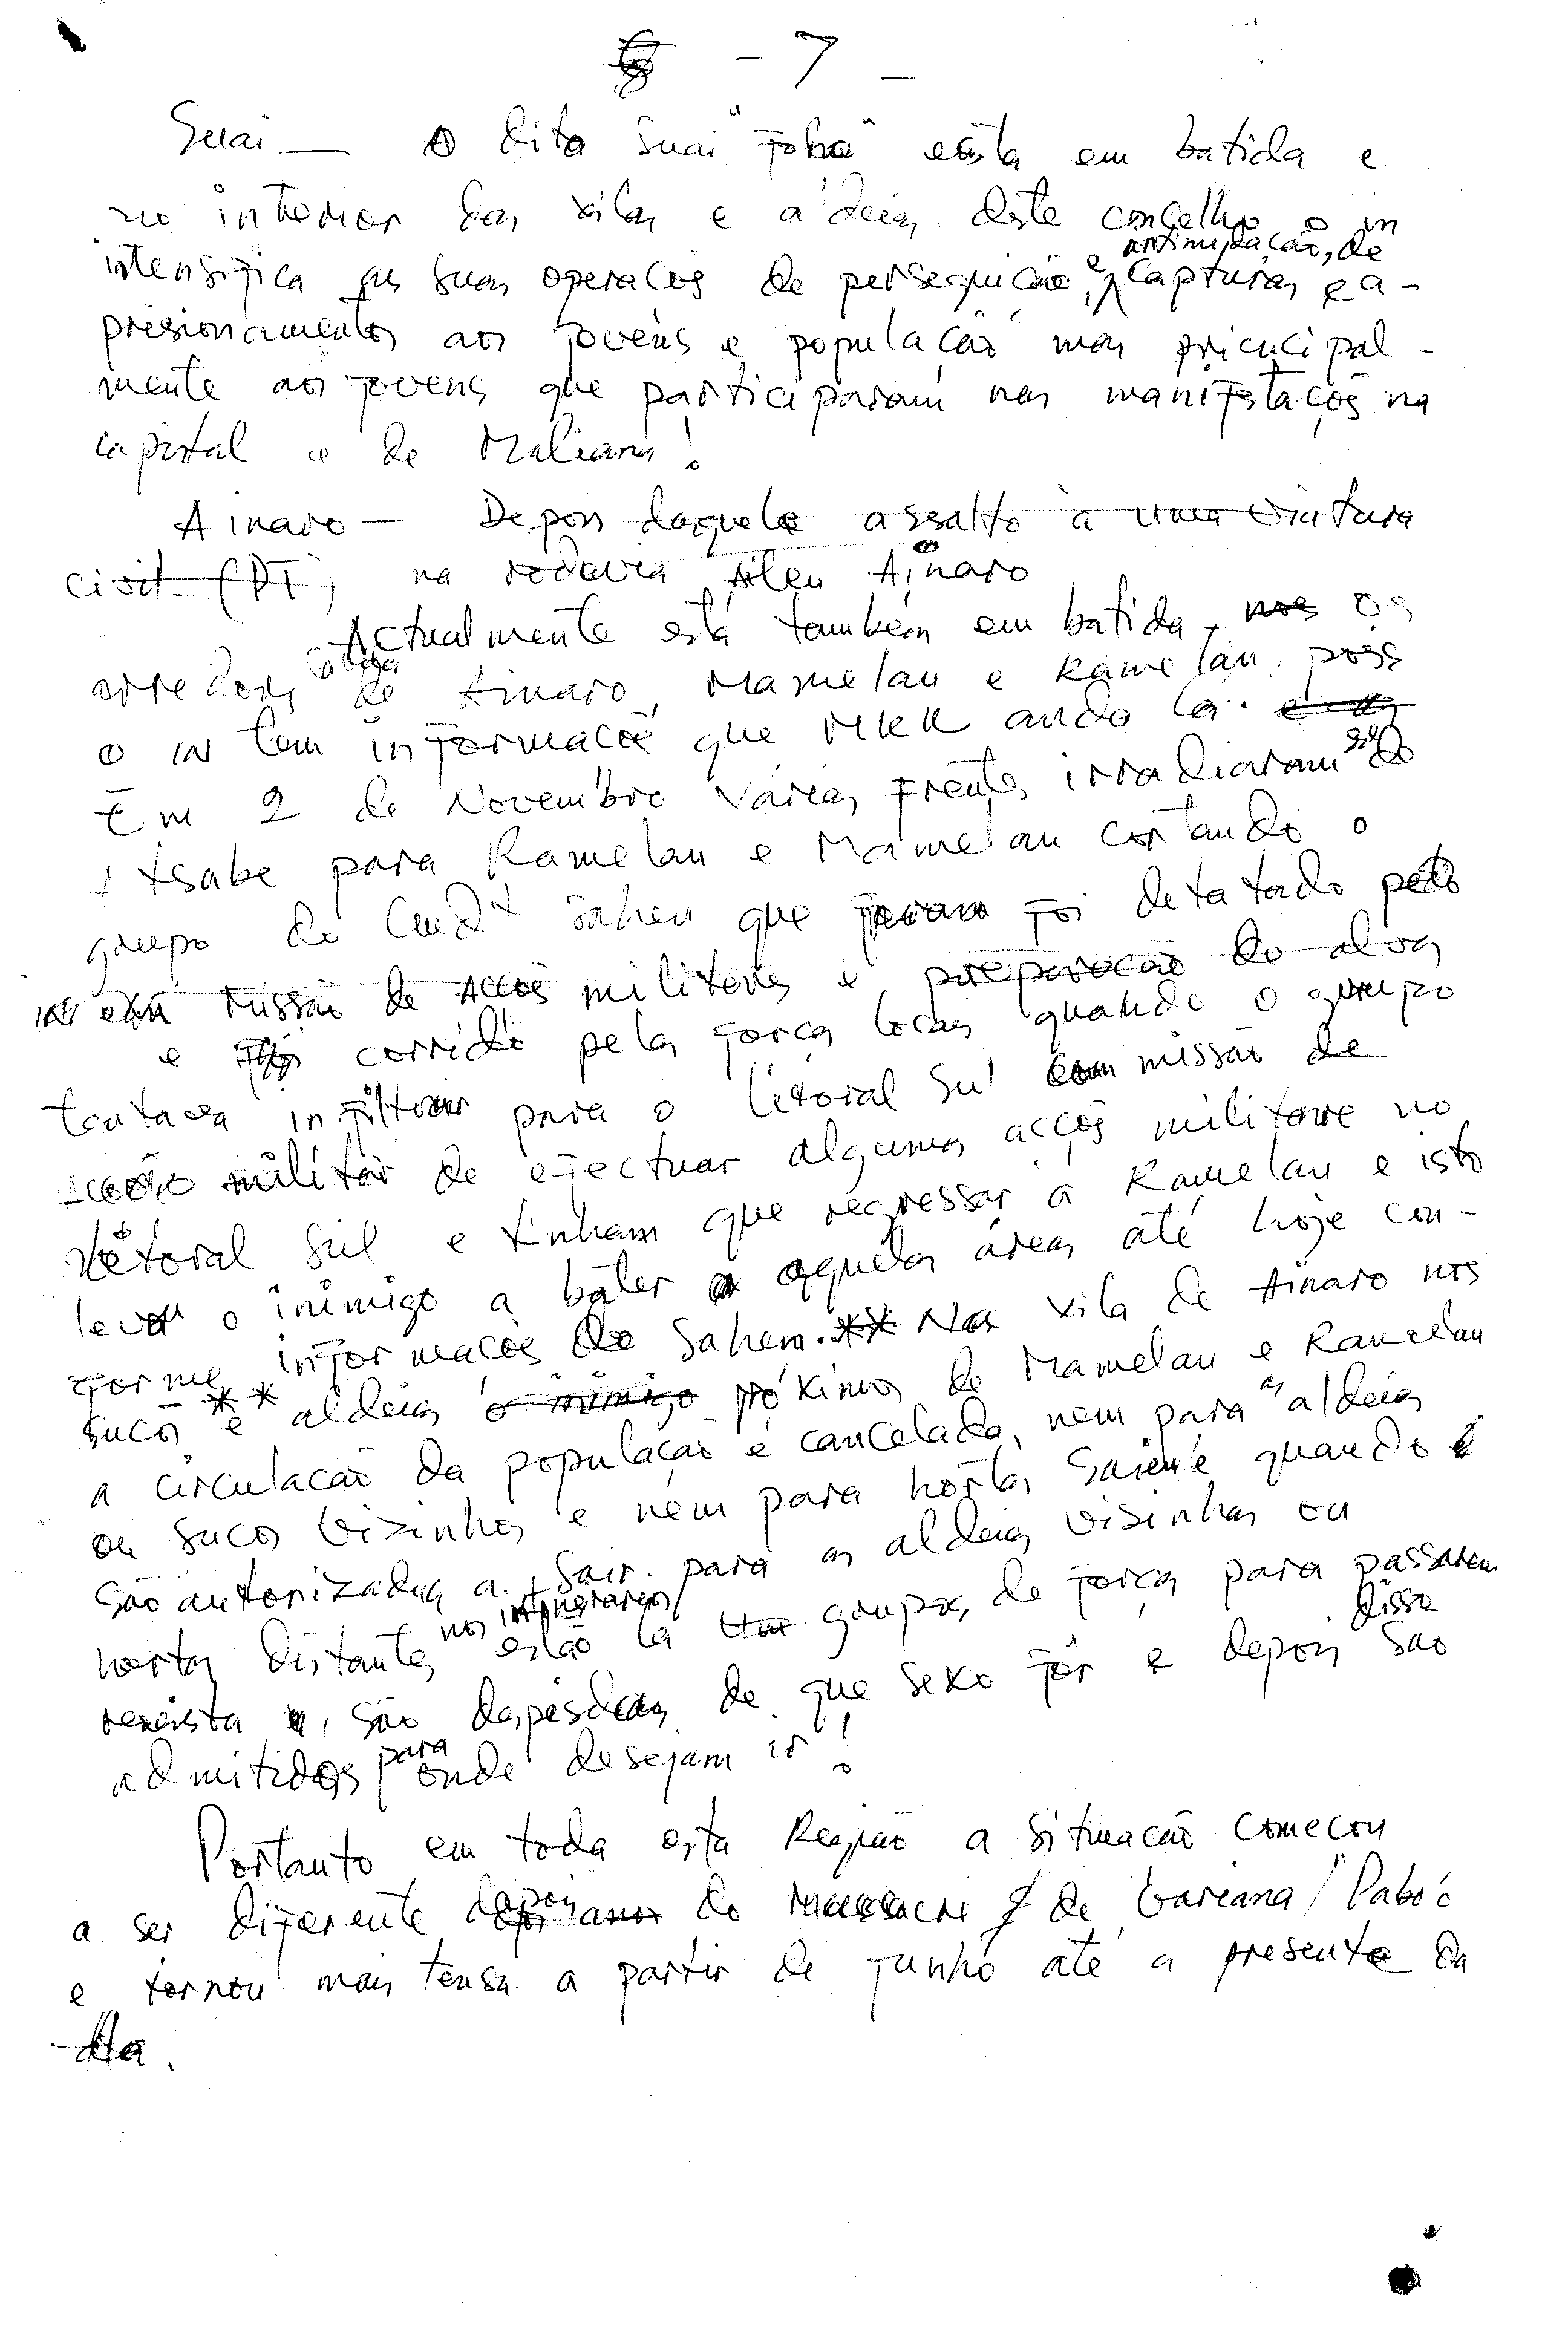 - 7 -
Suai — A dita Suai "foho" está em batida e
no interior das vilas e aldeias deste concelho o in
intensifica as suas operacões de perseguicão e antimidação, de capturas, e a-
presionamentos aos jovens e populacão mas pricucipal-
mente aos jovens que participaram nas manifstacões na
capital e de Maliana!
Ainaro — Depois daquele assalto a uma viatura
civil (PT) na rodovia Aileu Ainaro
Actualmente está também em batida, nos os
arredores de Ainaro, Mamelau e Ramelau. pois
o IN tem informacõe que MKK anda lá.
Em 2 de Novembro várias frentes irradiaram de
Atsabe para Ramelau e Mamelau cortando o
grupo do Cmdt Sahen que foi detatado pelo
IN em missão de accões militares e preparacão do
e corrido pelas forcas locais quando o grupo
tentava infiltrar para o litoral Sul com missão de
accão militar de efectuar algumas accões militare no
litoral Sul e tinham que regressar a Ramelau e isto
levou o inimigo a bater aquelas áreas até hoje con-
forme informacões do Sahem. ** Na vila de Ainaro nos
sucos ** e aldeias o inimigo próximos de Mamelau e Ramelau
a circulacão da populacão é cancelada, nem para as aldeias
ou sucos vizinhos e nem para hortas. Saiem é quando é
são autorizadas a sair para as aldeias visinhas ou
hortas distantes, nos intinerários estão lá um grupos de forcas para passarem
revista, são despisdas de que sexo fôr e depois disso são
admitidos para onde desejam ir!
Portanto em toda esta Região a situacão comecou
a ser diferente depois do Massacre de Gariana / Daboe
e tornou mais tensa a partir de junho até a presente da
ta.